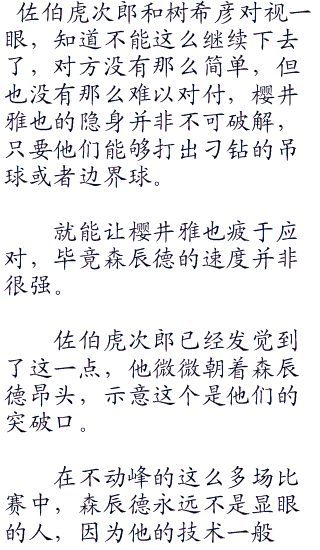 佐伯虎次郎和树希彦对视一
眼，知道不能这么继续下去
了，对方没有那么简单，但
也没有那么难以对付，樱井
雅也的隐身并非不可破解，
只要他们能够打出刁钻的吊
球或者边界球。
就能让樱井雅也疲于应
对，毕竟森辰德的速度并非
很强。
佐伯虎次郎已经发觉到
了这一点，他微微朝着森辰
德昂头，示意这个是他们的
突破口。
在不动峰的这么多场比
赛中，森辰德永远不是显眼
的人，因为他的技术一般